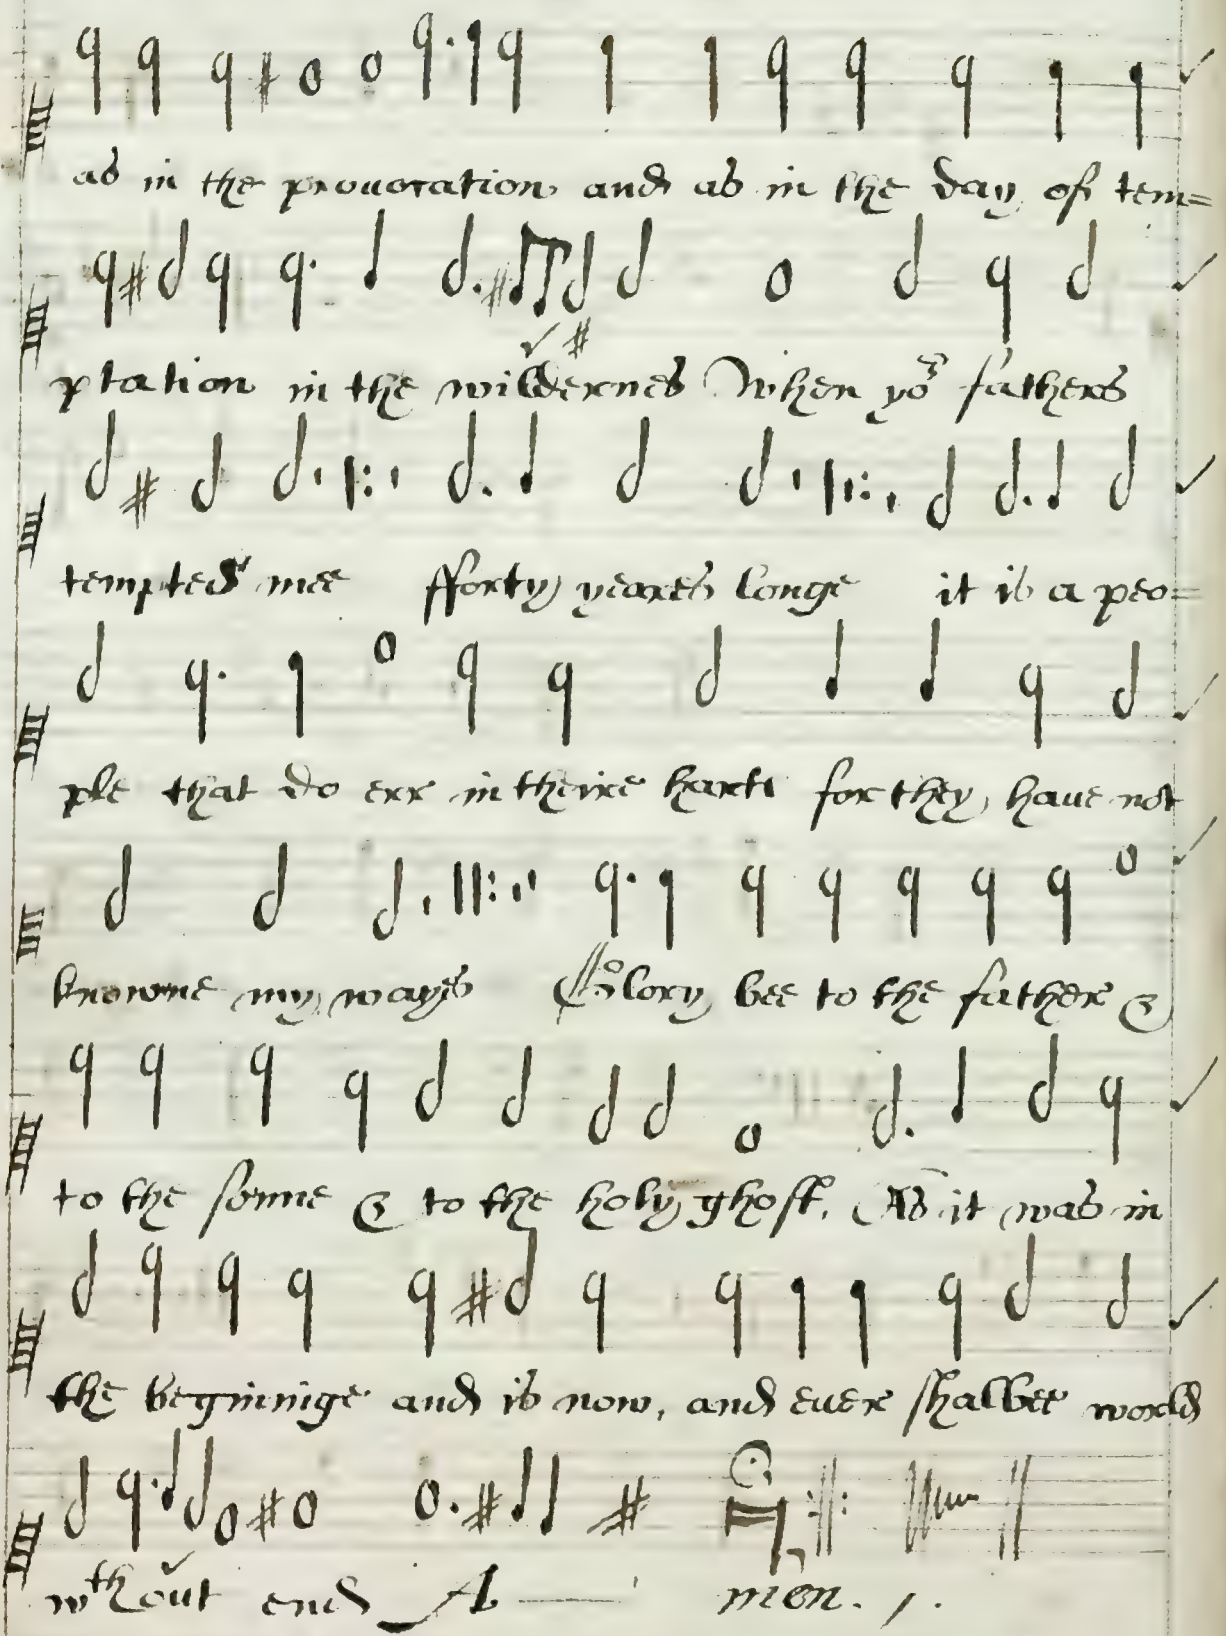 as in the prouocation and as in the day of tem=
ptation in the wildernes When yor fathers
tempted mee fforty yeares longe it is a peo=
ple that do err in theire harts for they haue not
knowne my wayes Glory bee to the father &
to the sonne & to the holy ghost. As it was in
the beginninge and is now, and euer shalbee world
wthout end A—men.